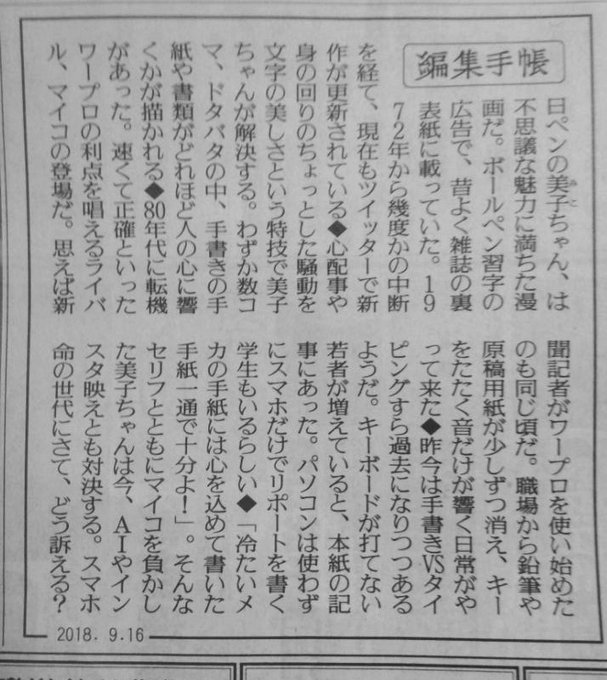 編集手帳
日ペンの美子ちゃん、は
みこ
不思議な魅力に満ちた漫
画だ。ボールペン習字の
広告で、昔よく雑誌の裏
表紙に載っていた。19
72年から幾度かの中断
を経て、現在もツイッターで新
作が更新されている◆心配事や
身の回りのちょっとした騒動を
文字の美しさという特技で美子
ちゃんが解決する。わずか数コ
マ、ドタバタの中、手書きの手
紙や書類がどれほど人の心に響
くかが描かれる◆80年代に転機
があった。速くて正確といった
ワープロの利点を唱えるライバ
ル、マイコの登場だ。思えば新
聞記者がワープロを使い始めた
のも同じ頃だ。職場から鉛筆や
原稿用紙が少しずつ消え、キー
をたたく音だけが響く日常がや
って来た◆昨今は手書きVSタイ
ピングすら過去になりつつある
ようだ。キーボードが打てない
若者が増えていると、本紙の記
事にあった。パソコンは使わず
にスマホだけでリポートを書く
学生もいるらしい◆「冷たいメ
カの手紙には心を込めて書いた
手紙一通で十分よ!」。そんな
セリフとともにマイコを負かし
た美子ちゃんは今、AIやイン
スタ映えとも対決する。スマホ
命の世代にさて、どう訴える?
2018. 9.16